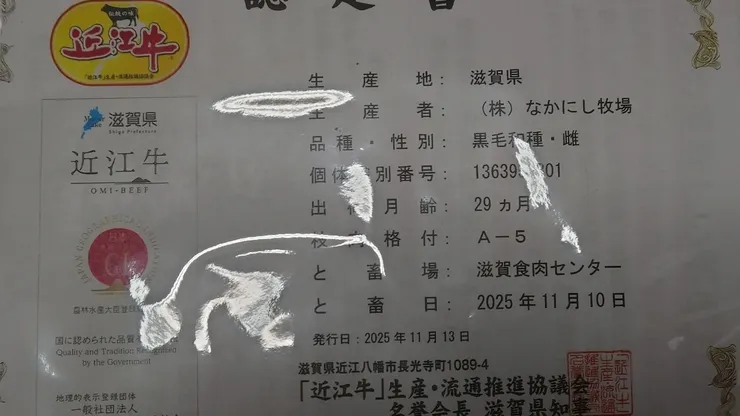 認定書
伝統の味
近江牛
「近江牛」生産・流通推進協議会
滋賀県
Shiga Prefecture
近江牛
OMI-BEEF
JAPAN GEOGRAPHICAL INDICATION
日本
GI
農林水産大臣登録
国に認められた品質
Quality and Tradition Recognised
by the Government
地理的表示登録団体
一般社団法人
生産地： 滋賀県
生産者： （株）なかにし牧場
品種・性別： 黒毛和種・雌
個体識別番号： 13639 201
出荷月齢： 29ヵ月
枝肉格付： A－5
と畜場： 滋賀食肉センター
と畜日： 2025年11月10日
発行日：2025年11月13日
滋賀県近江八幡市長光寺町1089-4
「近江牛」生産・流通推進協議会
名誉会長 滋賀県知事